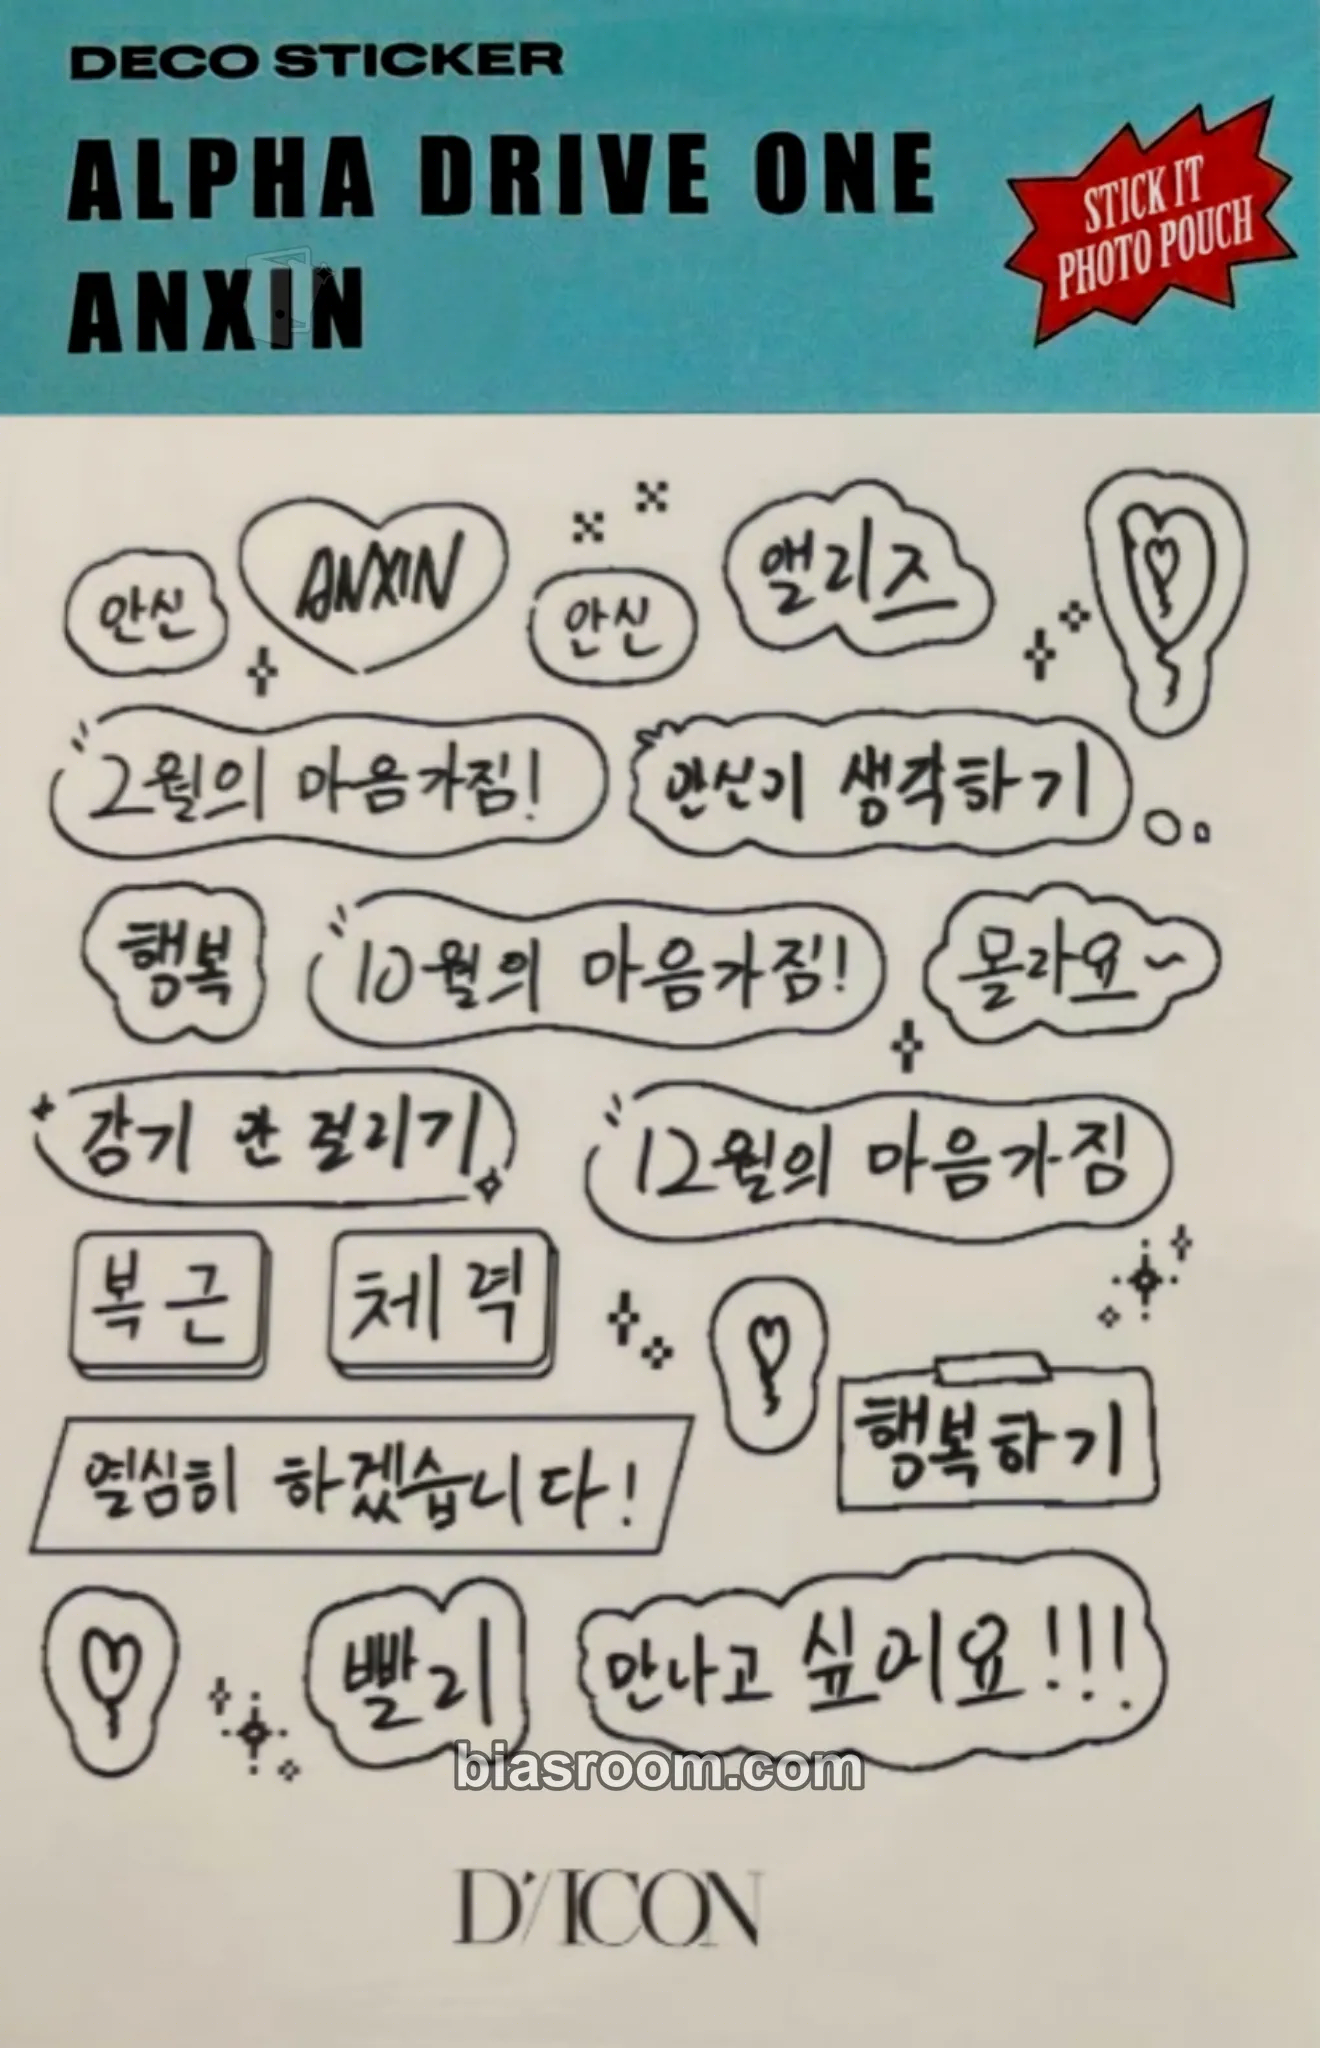 DECO STICKER
ALPHA DRIVE ONE
ANXIN
STICK IT
PHOTO POUCH
안신
ANXIN
안신
앨리즈
2월의 마음가짐!
안신이 생각하기
행복
10월의 마음가짐!
몰라요~
감기 안 걸리기
12월의 마음가짐
복근
체력
행복하기
열심히 하겠습니다!
빨리
만나고 싶어요!!!
biasroom.com
D'/ICON